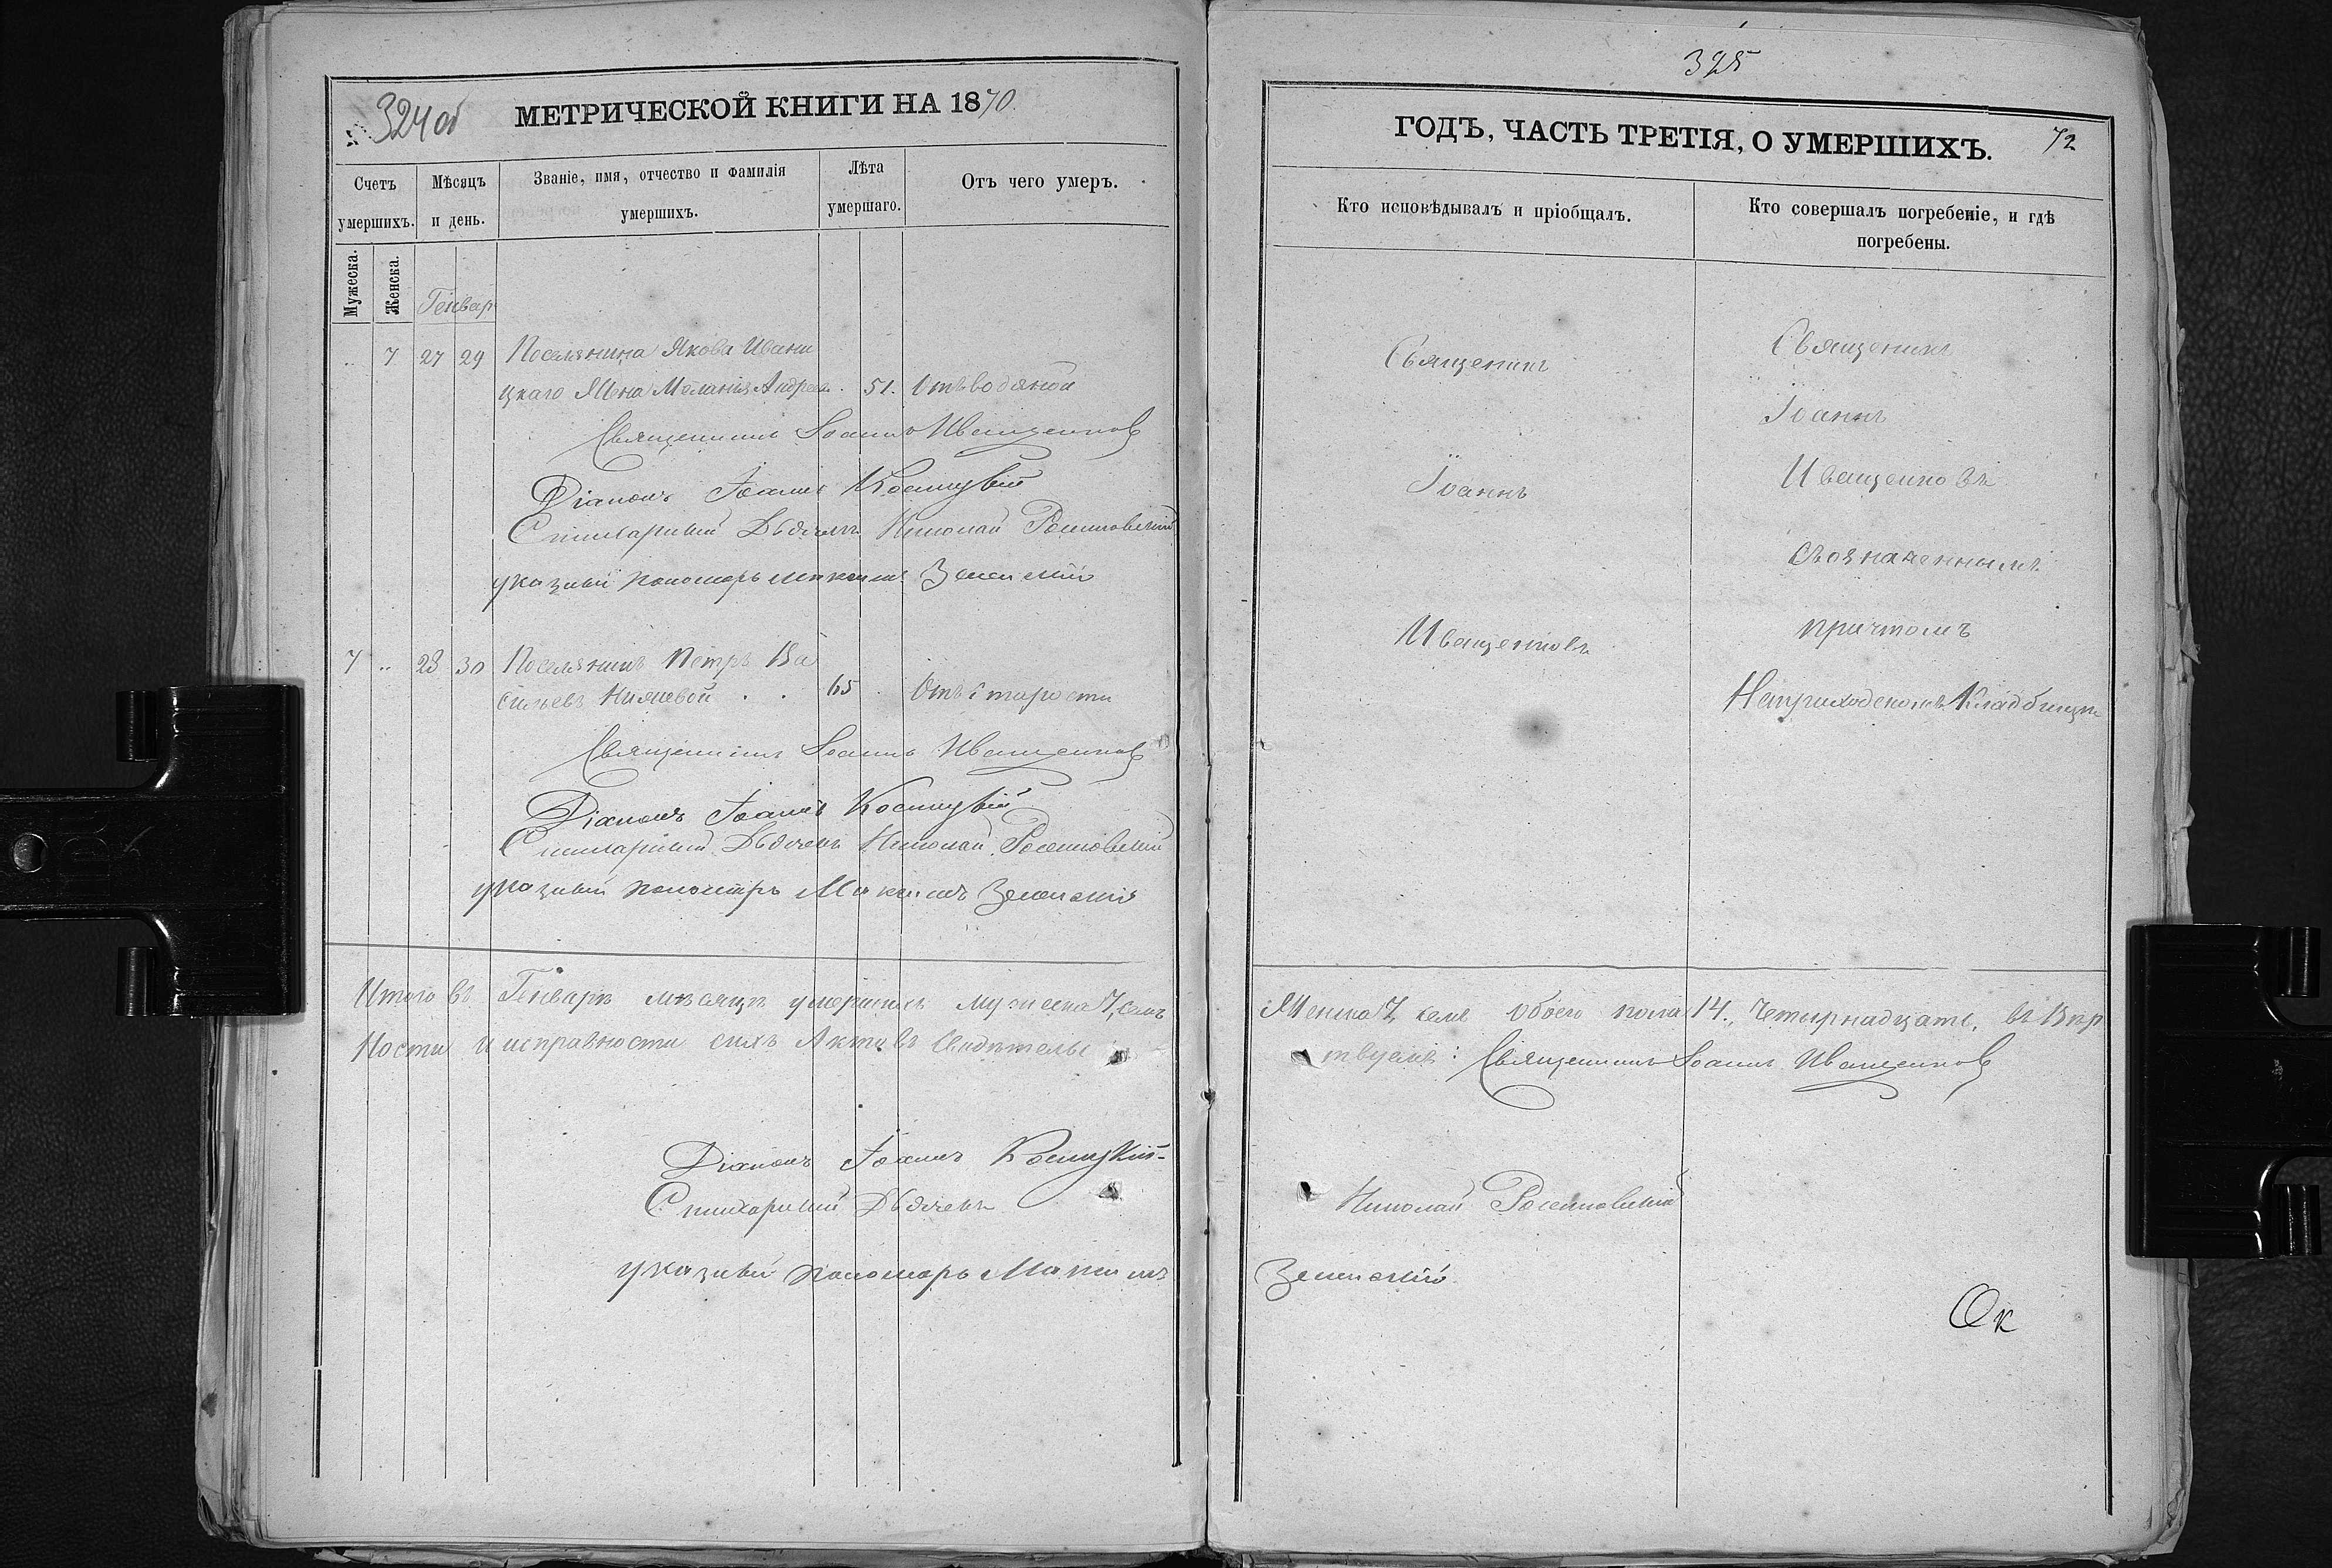 324 об
МЕТРИЧЕСКОЙ КНИГИ НА 1870.
Счетъ умершихъ.
Мѣсяцъ и день.
Званіе, имя, отчество и фамилія умершихъ.
Лѣта умершаго.
Отъ чего умеръ.
Мужеска.
Женска.
Генвар
7 27 29 Поселянина Якова Ивани
цкаго Жена Меланія Андреева . 51. Отъ водяной
Священникъ Іоаннъ Иващенков
Діаконъ Іоаннъ Косицкій
Стихарный Дьячекъ Николай
указный пономарь Максимъ
7 .. 28 30 Поселянинъ Петръ Ва
сильевъ . . 65 . Отъ старости
Священникъ Іоаннъ Иващенков
Діаконъ Іоаннъ Косицкій
Стихарный Дьячекъ Николай
указный пономарь Максимъ
Итого въ Генварѣ мѣсяцѣ умершихъ мужеска 7, семь
ности и исправности сихъ Актовъ Свидѣтельс
Діаконъ Іоаннъ Косицкій
Стихарный Дьячекъ
указный пономарь Максимъ
325
ГОДЪ, ЧАСТЬ ТРЕТІЯ, О УМЕРШИХЪ.
72
Кто исповѣдывалъ и пріобщалъ.
Кто совершалъ погребеніе, и гдѣ погребены.
Священикъ
Іоаннъ
Иващенковъ
Священикъ
Іоаннъ
Иващенковъ
съозначеннымъ
причтомъ
Наприходскомъ Кладбищѣ
Женска 7, семь обоего пола 14., Четырнадцать, въ
твуемъ: Священникъ Іоаннъ Иващенков
Николай
Ок